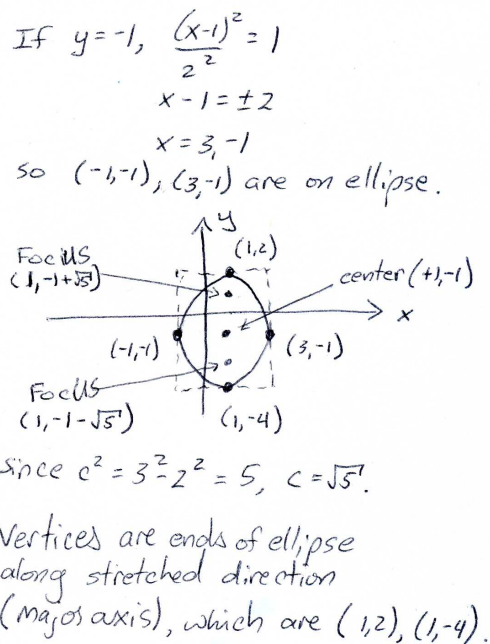 If y=-1, (x-1)²/2² = 1
x-1=±2
x=3,-1
so (-1,-1), (3,-1) are on ellipse.
y
(1,2)
Focus
(1,-1+√5)
center (+1,-1)
x
(-1,-1)
(3,-1)
Focus
(1,-1-√5)
(1,-4)
since c² = 3²-2² = 5, c=√5.
Vertices are ends of ellipse
along stretched direction
(major axis), which are (1,2), (1,-4).